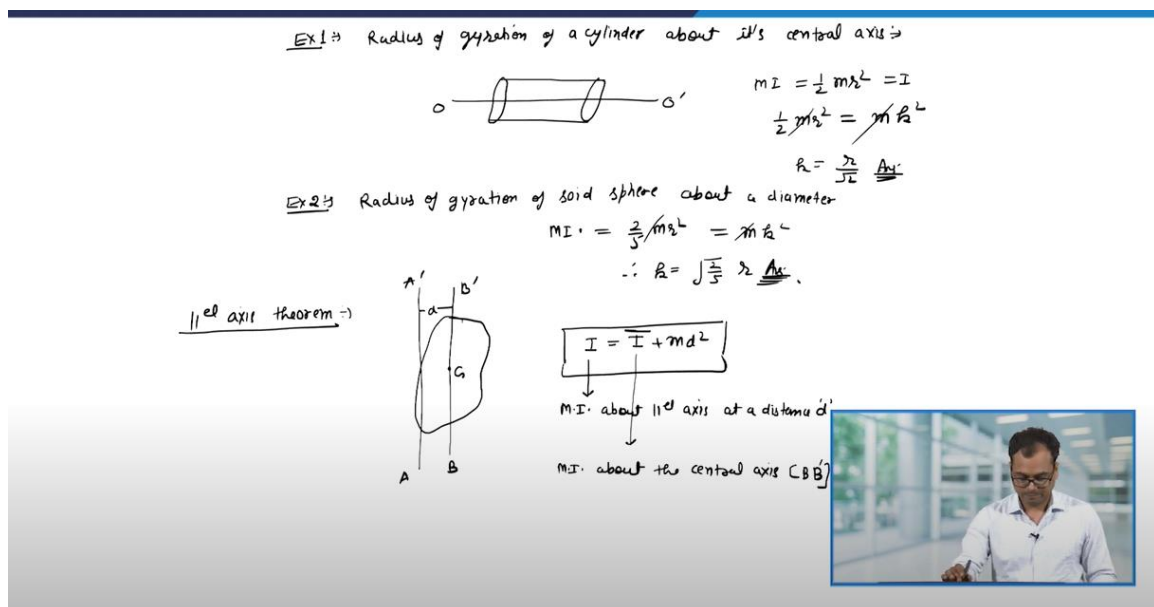 Ex1:→ Radius of gyration of a cylinder about it's central axis:→
O O'
MI = 1/2 mr² = I
1/2 mr² = mk²
k = r/√2 Ans.
Ex2:→ Radius of gyration of soid sphere about a diameter
MI. = 2/5 mr² = mk²
∴ k = √2/5 r Ans.
||el axis theorem:→
A' B'
d
G
A B
I = I̅ + md²
M.I. about ||el axis at a distance 'd'
M.I. about the central axis [BB']